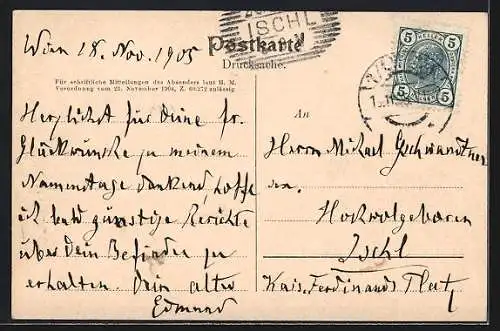 Wien 18. Nov. 1905
ISCHL
Postkarte
Drucksache.
5 HELLER 5
5 HELLER 5
Für schriftliche Mitteilungen des Absenders laut H. M.
Verordnung vom 21. November 1904, Z. 60.272 zulässig
An
Herzlichst für Deine fr.
Glückwünsche zu meinem
Namenstage dankend, hoffe
ich bald günstige Berichte
über Dein Befinden zu
erhalten. Dein alter
Edmund
Herrn Michael Gschwandtner
Hochwolgeboren
Ischl
Kais. Ferdinands Platz